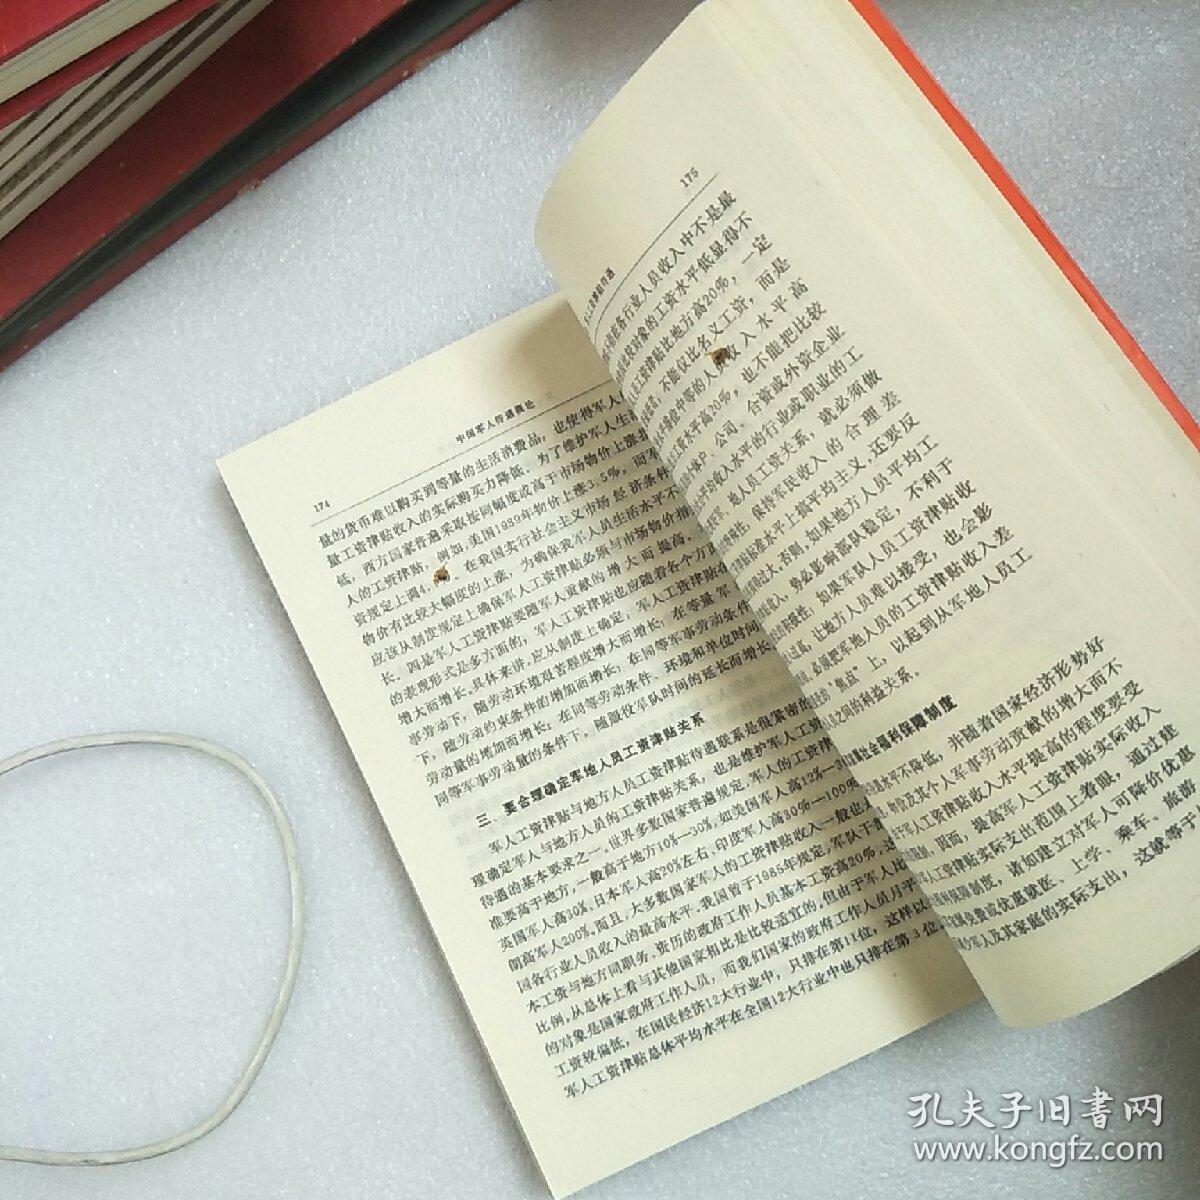 174
中国军人待遇概论
量的货币难以购买到等量的生活消费品，也使得军人
量工资津贴收入的实际购买力降低。为了维护军人生
低，西方国家普遍采取按同幅度或高于市场物价上涨
人的工资津贴，例如，美国1982年物价上涨3.5%，而军
资规定上调4。在我国实行社会主义市场经济条件
物价有比较大幅度的上涨，为确保我军人员生活水平不
应该从制度规定上确保军人工资津贴必须与市场物价
长。四是军人工资津贴要随军人贡献的增大而提高。
的表现形式是多方面的，军人工资津贴也应随着各个方面
增大而增长。具体来讲，应从制度上确定，军人工资津贴在
事劳动下，随劳动环境艰苦程度增大而增长；在等量军
下，随劳动约束条件的增加而增长；在同等军事劳动条件
劳动量的增加而增长；在同等劳动条件、环境和单位时间
同等军事劳动量的条件下，随服役军队时间的延长而增长
三、要合理确定军地人员工资津贴关系
军人工资津贴与地方人员工资津贴待遇联系是很紧密的
理确定军人与地方人员的工资津贴关系，也是维护军人工资
待遇的基本要求之一。世界多数国家普遍规定，军人的工资津
准要高于地方，一般高于地方10%—30%，如美国军人高12%—
英国军人高30%，日本军人高20%左右，印度军人高30%—100%
朝高军人200%。而且，大多数国家军人的工资津贴收入一般也是
国各行业人员收入的最高水平。我国曾于1985年规定，军队干部
本工资与地方同职务、资历的政府工作人员基本工资高20%，这
比例，从总体上看与其他国家相比是比较适宜的。但由于军人比
的对象是国家政府工作人员，而我们国家的政府工作人员月平
工资较偏低，在国民经济12大行业中，只排在第11位，这样以
军人工资津贴总体平均水平在全国12大行业中也只排在第3位
175
在各行业人员收入中不是最
对象的工资水平低显得不
工资津贴比地方高20%，一定
不能仅比名义工资，而是
中等的人员收入水平高
工资水平高20%，也不能把比较
公司、合资或外资企业
收入水平的行业或职业的工
地人员工资关系，就必须做
保持军民收入的合理差
标准水平上搞平均主义，还要反
过大。否则，如果地方人员平均工
收入，势必影响部队稳定，不利于
积极性；如果军队人员工资津贴收
过高，让地方人员难以接受，也会影
必须把军地人员的工资津贴收入差
的“焦点”上，以起到从军地人员工
之间的利益关系。
社会福利保障制度
水平不降低，并随着国家经济形势好
物价及其个人军事劳动贡献的增大而不
军人工资津贴收入水平提高的程度要受
限制。因而，提高军人工资津贴实际收入
人工资津贴实际支出范围上着眼，通过建
利保障制度，诸如建立对军人可降价优惠
免费或优惠就医、上学、乘车、旅游
军人及其家庭的实际支出，这就等于
孔夫子旧书网
www.kongfz.com